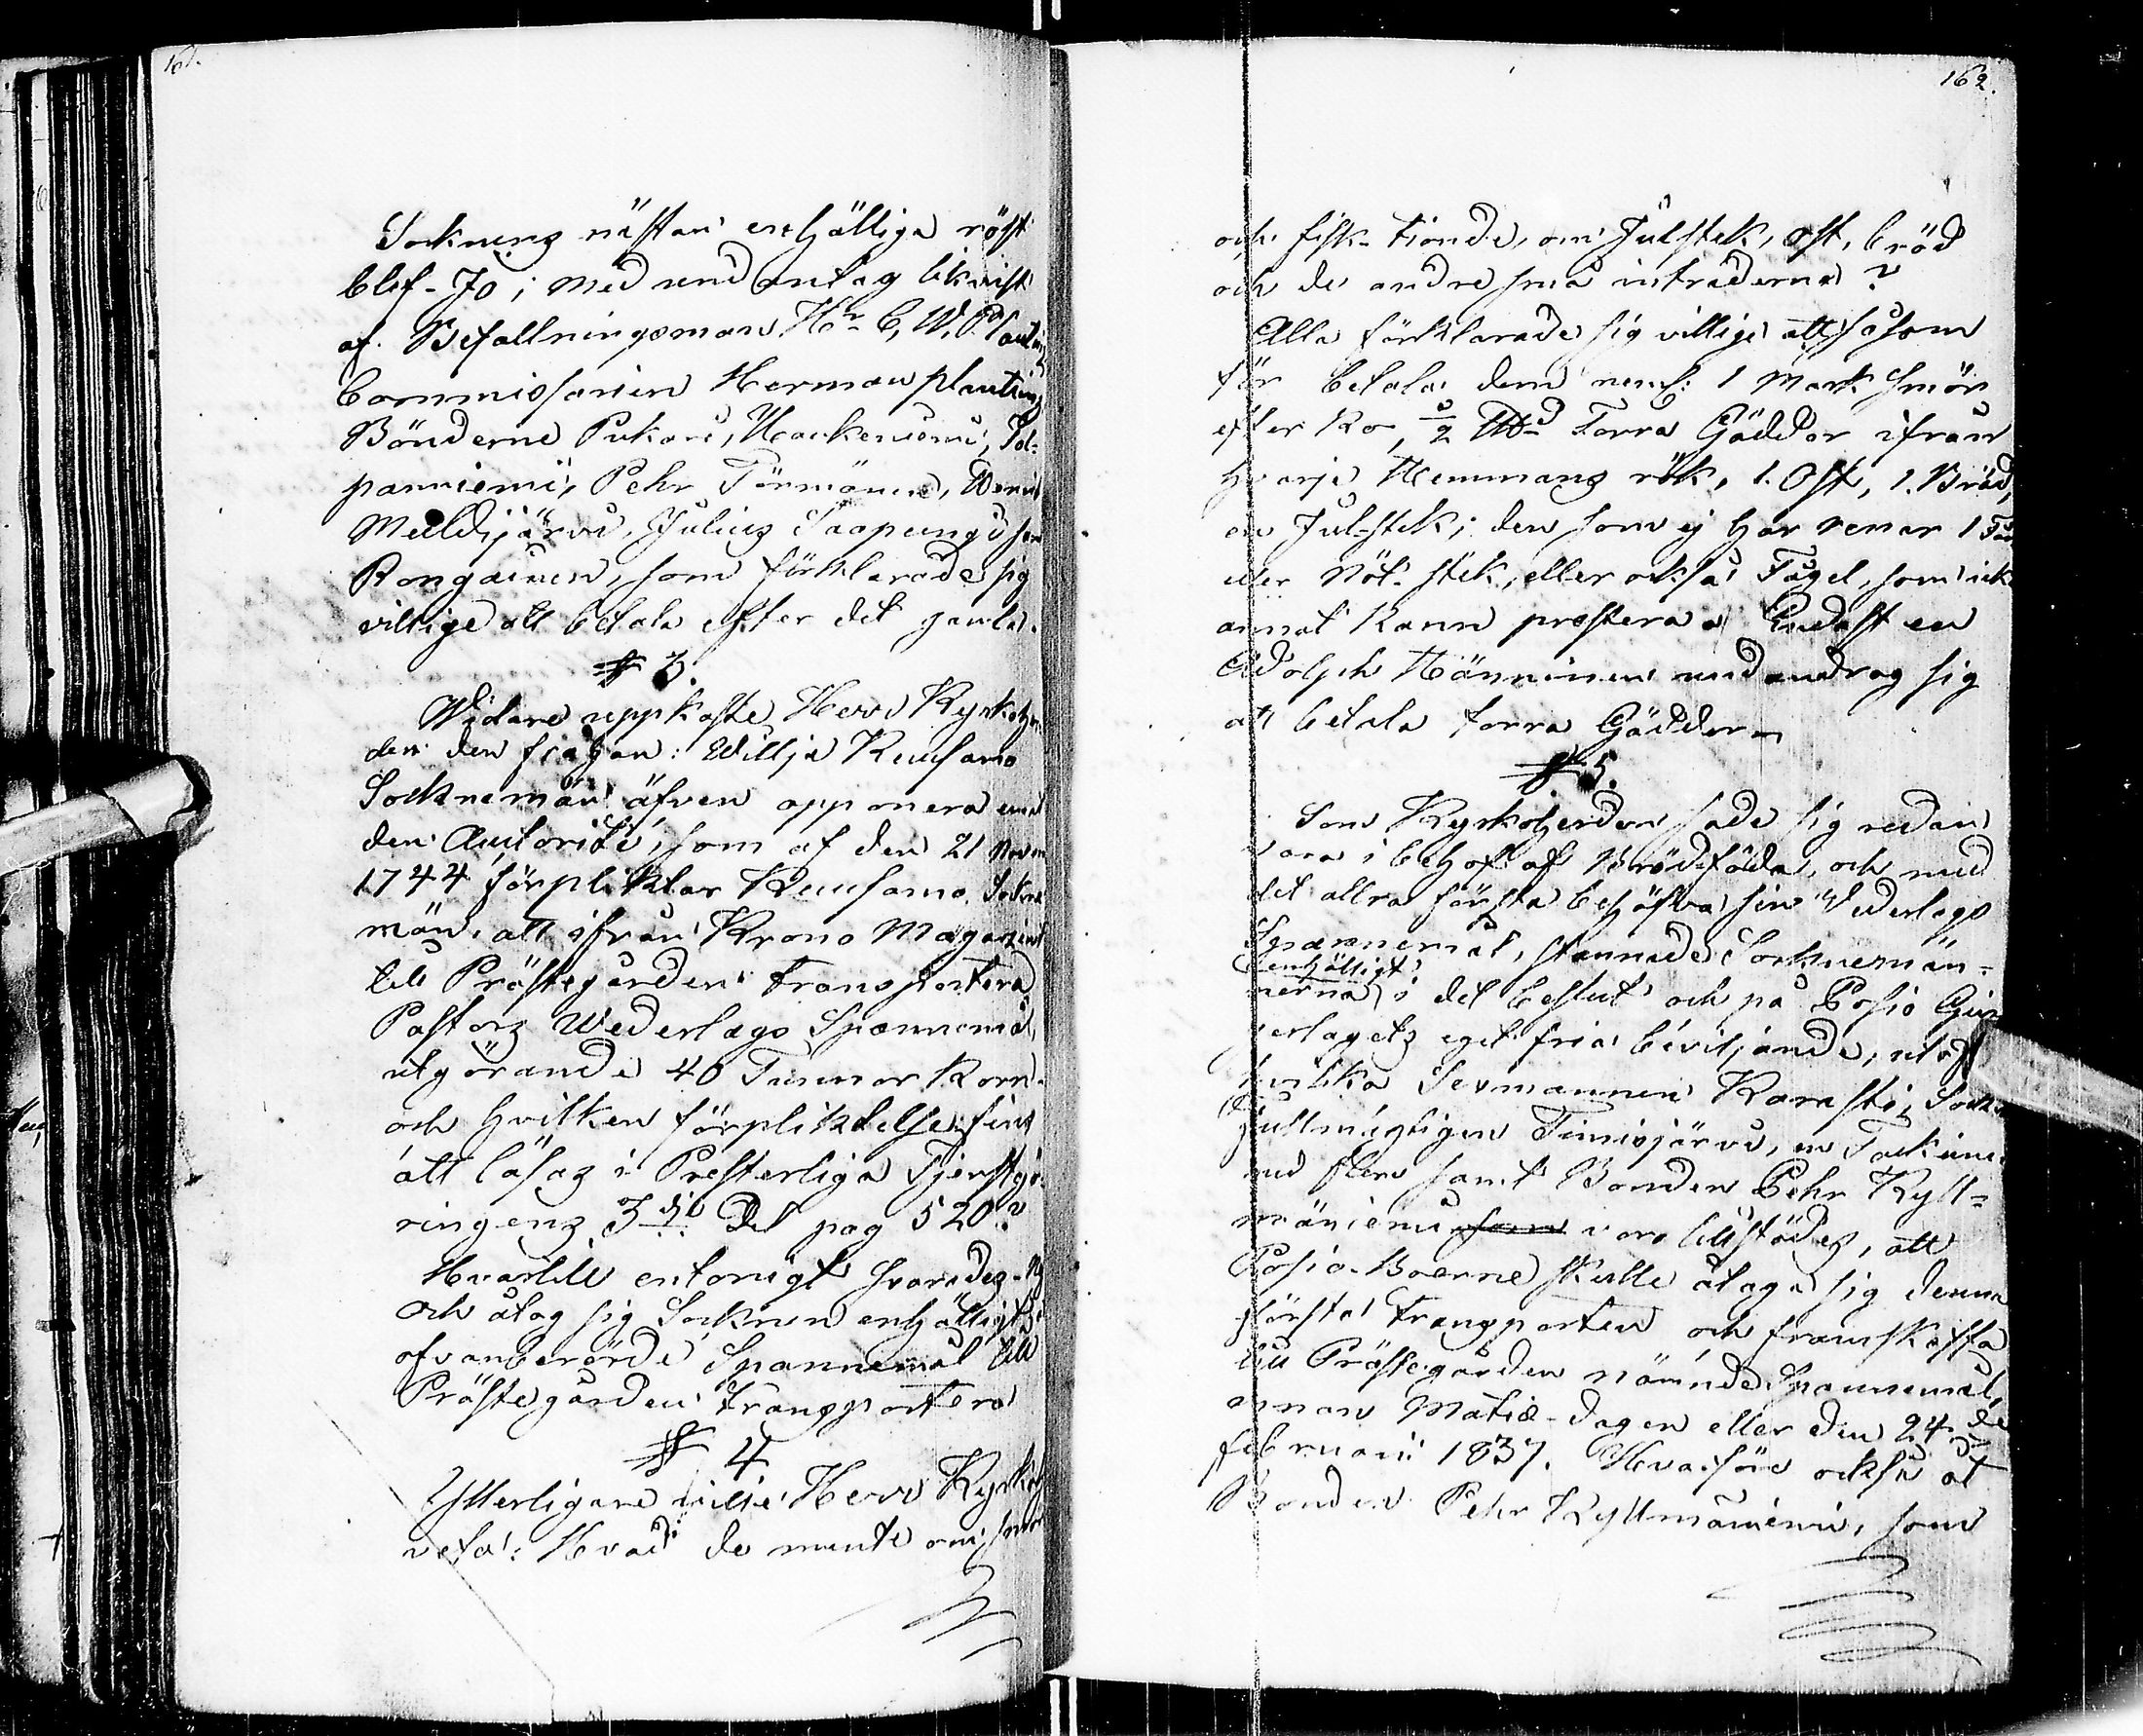 161.
Socknens nästan enhälliga röst
blef - Jo; med undantag likväl
af Befallningsman Hr C. W. Planting
Commissarien Herman Planting
Bönderne Pukari, Määttäniemi,
panniemi, Pehr Törmänen,
Mulldijärvi, Julius Saapunki samt
Rongainen, som förklarade sig
villige att betala efter det gamla.
§ 3.
Widare uppkaste Herr Kyrkoher-
den den frågan: Willja Kuusamo
Socknemän äfven opponera emot
den Autorité, som af den 21 Novem
1744 förpliktar Kuusamo Sockne
män, att ifrån Krono Magazinet
till Prästegården transportera
Pastors Wederlags Spannemål,
utgörande 40 Tunnor Korn.
och hvilken förpliktelse fins
att läsas i Presterliga Tjenstgö-
ringens 3dje Del pag 520?
Hvartill entonigt svarades - Nej
och åtog sig Socknen enhälligt
ofvanberörde Spannemål till
Prästegården transportera
§ 4
Ytterligare ville Herr Kyrkoh
veta: Hvad de mente om smör
162.
och fisk-tionde, om Julstek, ost, bröd
och de andre små intraderna?
Alla förklarade sig villige att såsom
för betala dem neml: 1 Mark Smör
efter Ko, ½ L℔ Torra Gäddor ifrån
hvarje Hemmans rök, 1. Ost, 1. Bröd,
en Jul-stek; den som ej har renar 1 Får
eller Nöt-stek, eller också Fågel, som icke
annat kann prestera. Endast en
Adolph Hänninen undandrog sig
att betala torra Gäddor.
§ 5.
Som Kyrkoherden sade sig redan
vara i behof af Brödföda, och med
det allra första behöfva sin Wederlags
Spannemål, stannade Socknemän-
enhälligt
nerna i det beslut och på Posio
gerlagets eget fria beviljande,
hvilka Sexmannen Karasti, Sockne
fullmägtigen Timisjärvi, en
med flere samt Bonden Pehr Kyll-
mäniemi som voro tillstädes, att
Posio-Boerne skulle åtaga sig denna
första transporten och framskaffa
till Prästegården nämnde Spannemål
innan Matiæ-dagen eller den 24de
februarii 1837. Hvarföre också åt
Bonden Pehr Kyllmäniemi, som